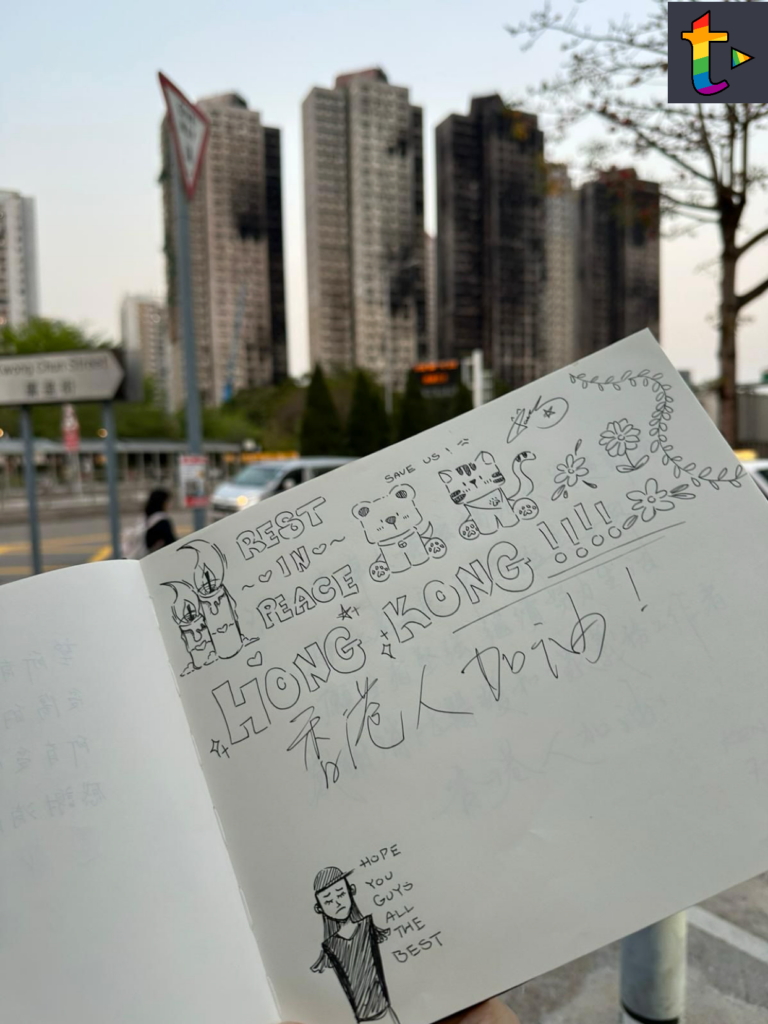 t
Kwong Chun Street
SAVE US!
REST
IN
PEACE
HONG KONG!!!!
香港人加油!
HOPE
YOU
GUYS
ALL
THE
BEST